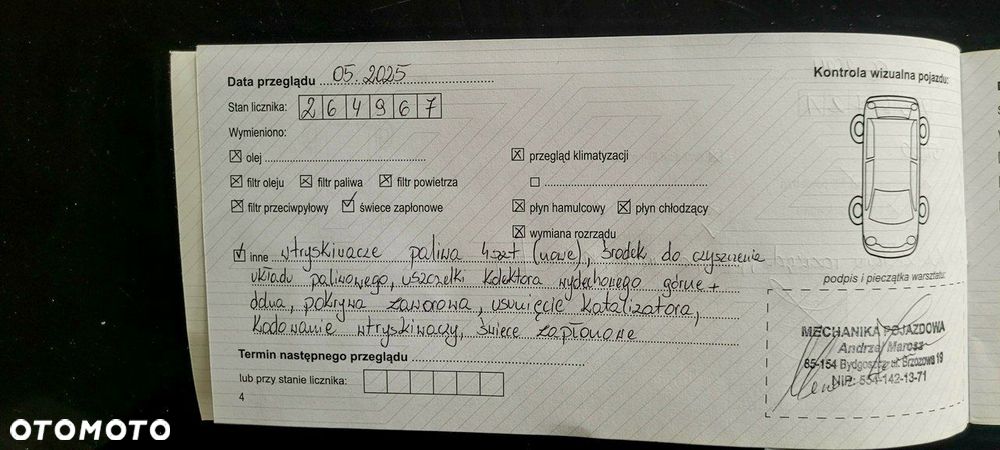 Data przeglądu 05.2025
Kontrola wizualna pojazdu:
Stan licznika: 264967
Wymieniono:
olej
przegląd klimatyzacji
filtr oleju filtr paliwa filtr powietrza
filtr przeciwpyłowy świece zapłonowe
płyn hamulcowy płyn chłodzący
wymiana rozrządu
inne wtryskiwacze paliwa 4szt (nowe), środek do czyszczenia
układu paliwowego, uszczelki kolektora wydechowego górne +
dolna, pokrywa zaworowa, usunięcie katalizatora,
kodowanie wtryskiwaczy, świece zapłonowe
podpis i pieczątka warsztatu:
MECHANIKA POJAZDOWA
Andrzej Marosz
85-154 Bydgoszcz ul. Brzozowa 19
NIP: 554-142-13-71
Termin następnego przeglądu
lub przy stanie licznika:
4
OTOMOTO